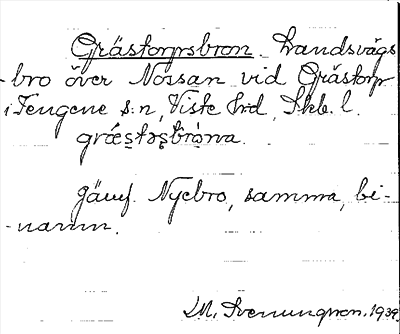 Grästorpsbron. Landsvägs-
bro över Nossan vid Grästorp
i Tengene s:n, Viste hrd, Skb. l.
Jämf. Nyebro, samma, bi-
namn.
M. Svenungson. 1939.